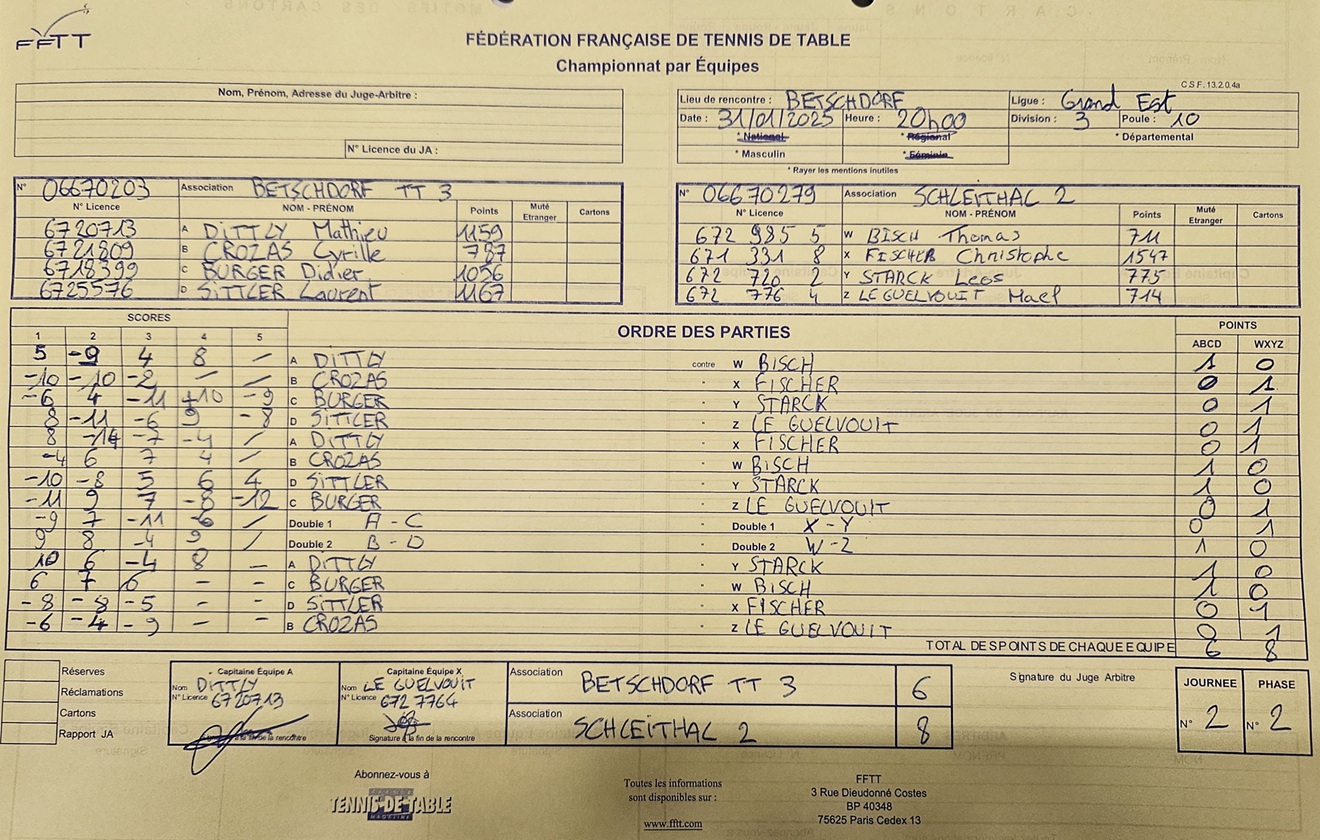 FFTT
FÉDÉRATION FRANÇAISE DE TENNIS DE TABLE
Championnat par Équipes
C.S.F. 13.2.0.4a
Nom, Prénom, Adresse du Juge-Arbitre :
N° Licence du JA :
Lieu de rencontre : BETSCHDORF Ligue : Grand Est
Date : 31/01/2025 Heure : 20h00 Division : 3 Poule : 10
* National * Régional * Départemental
* Masculin * Féminin
* Rayer les mentions inutiles
N° 06670203 Association BETSCHDORF TT 3
N° Licence NOM - PRÉNOM Points Muté Etranger Cartons
6720713 A DITTLY Mathieu 1159
6721809 B CROZAS Cyrille 787
6718399 C BURGER Didier 1056
6725576 D SITTLER Laurent 1167
N° 06670279 Association SCHLEITHAL 2
N° Licence NOM - PRÉNOM Points Muté Etranger Cartons
672 985 5 W BISCH Thomas 711
671 331 8 X FISCHER Christophe 1547
672 720 2 Y STARCK Leos 775
672 776 4 Z LE GUELVOUIT Mael 714
SCORES ORDRE DES PARTIES POINTS
1 2 3 4 5 ABCD WXYZ
5 -9 4 8 / A DITTLY contre W BISCH 1 0
-10 -10 -2 / / B CROZAS " X FISCHER 0 1
-6 4 -11 +10 -9 C BURGER " Y STARCK 0 1
8 -11 -6 9 -8 D SITTLER " Z LE GUELVOUIT 0 1
8 -14 -7 -4 / A DITTLY " X FISCHER 0 1
-4 6 7 4 / B CROZAS " W BISCH 1 0
-10 -8 5 6 4 D SITTLER " Y STARCK 1 0
-11 9 7 -8 -12 C BURGER " Z LE GUELVOUIT 0 1
-9 7 -11 -6 / Double 1 A - C " Double 1 X - Y 0 1
9 8 -4 9 / Double 2 B - D " Double 2 W - Z 1 0
10 6 -4 8 - A DITTLY " Y STARCK 1 0
6 7 6 - - C BURGER " W BISCH 1 0
-8 -8 -5 - - D SITTLER " X FISCHER 0 1
-6 -4 -9 - - B CROZAS " Z LE GUELVOUIT 0 1
TOTAL DES POINTS DE CHAQUE EQUIPE 6 8
Réserves
Réclamations
Cartons
Rapport JA
Capitaine Équipe A
Nom DITTLY
N° Licence 6720713
Capitaine Équipe X
Nom LE GUELVOUIT
N° Licence 672 7764
Signature à la fin de la rencontre
Association BETSCHDORF TT 3 6
Association SCHLEITHAL 2 8
Signature du Juge Arbitre
JOURNEE PHASE
N° 2 N° 2
Abonnez-vous à
TENNIS DE TABLE
MAGAZINE
Toutes les informations
sont disponibles sur :
www.fftt.com
FFTT
3 Rue Dieudonné Costes
BP 40348
75625 Paris Cedex 13